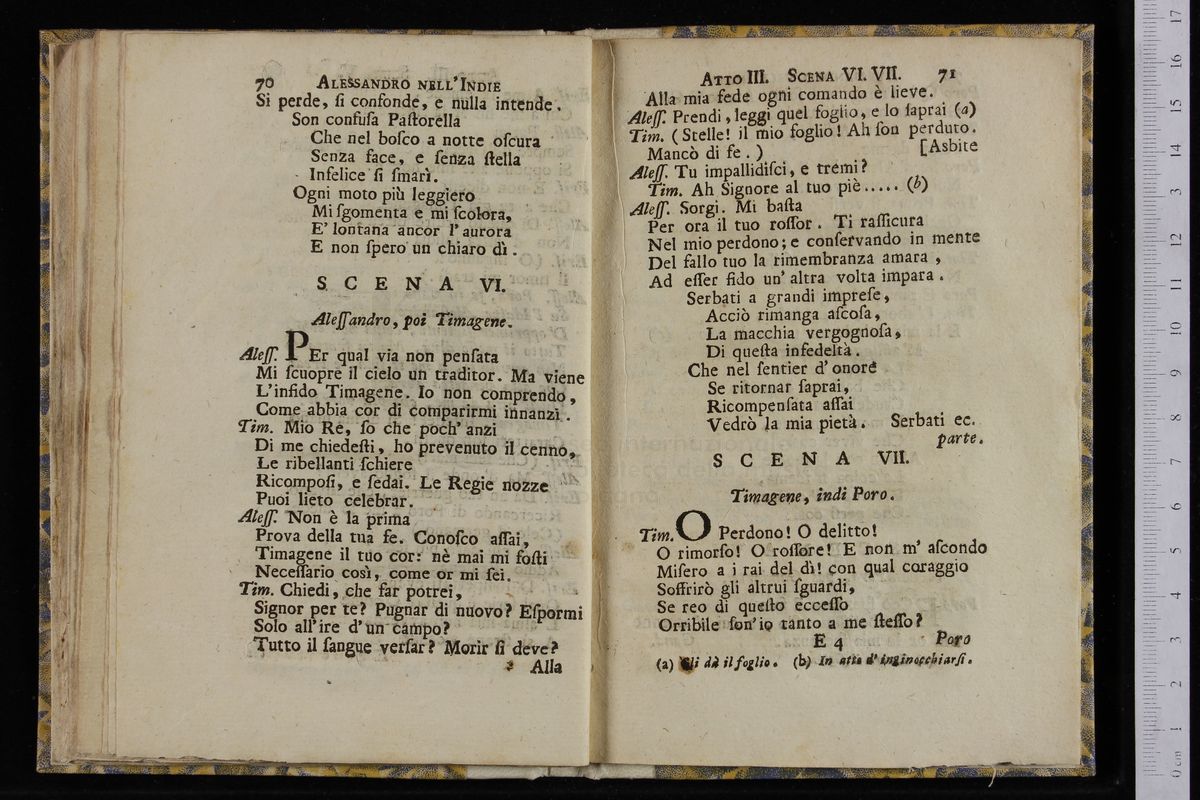 70 ALESSANDRO NELL'INDIE
Si perde, ſi confonde, e nulla intende.
Son confuſa Paſtorella
Che nel boſco a notte oſcura
Senza face, e ſenza ſtella
Infelice ſi ſmarì.
Ogni moto più leggiero
Mi ſgomenta e mi ſcolora,
E' lontana ancor l'aurora
E non ſpero un chiaro dì.
SCENA VI.
Aleſſandro, poi Timagene.
Aleſſ. PEr qual via non penſata
Mi ſcuopre il cielo un traditor. Ma viene
L'infido Timagene. Io non comprendo,
Come abbia cor di comparirmi innanzi.
Tim. Mio Re, ſo che poch' anzi
Di me chiedeſti, ho prevenuto il cenno,
Le ribellanti ſchiere
Ricompoſi, e ſedai. Le Regie nozze
Puoi lieto celebrar.
Aleſſ. Non è la prima
Prova della tua fe. Conoſco aſſai,
Timagene il tuo cor: nè mai mi foſti
Neceſſario così, come or mi ſei.
Tim. Chiedi, che far potrei,
Signor per te? Pugnar di nuovo? Eſpormi
Solo all'ire d'un campo?
Tutto il ſangue verſar? Morir ſi deve?
Alla
ATTO III. SCENA VI. VII. 71
Alla mia fede ogni comando è lieve.
Aleſſ. Prendi, leggi quel foglio, e lo ſaprai (a)
Tim. (Stelle! il mio foglio! Ah ſon perduto.
Mancò di fe.) [Asbite
Aleſſ. Tu impallidiſci, e tremi?
Tim. Ah Signore al tuo piè..... (b)
Aleſſ. Sorgi. Mi baſta
Per ora il tuo roſſor. Ti raſſicura
Nel mio perdono; e conſervando in mente
Del fallo tuo la rimembranza amara,
Ad eſſer fido un' altra volta impara.
Serbati a grandi impreſe,
Acciò rimanga aſcoſa,
La macchia vergognoſa,
Di queſta infedeltà.
Che nel ſentier d'onore
Se ritornar ſaprai,
Ricompenſata aſſai
Vedrò la mia pietà. Serbati ec.
parte.
SCENA VII.
Timagene, indi Poro.
Tim. O Perdono! O delitto!
O rimorſo! O roſſore! E non m' aſcondo
Miſero a i rai del dì! con qual coraggio
Soffrirò gli altrui ſguardi,
Se reo di queſto ecceſſo
Orribile ſon'io tanto a me ſteſſo?
E 4 Poro
(a) Gli dà il foglio. (b) In atto d'inginocchiarſi.